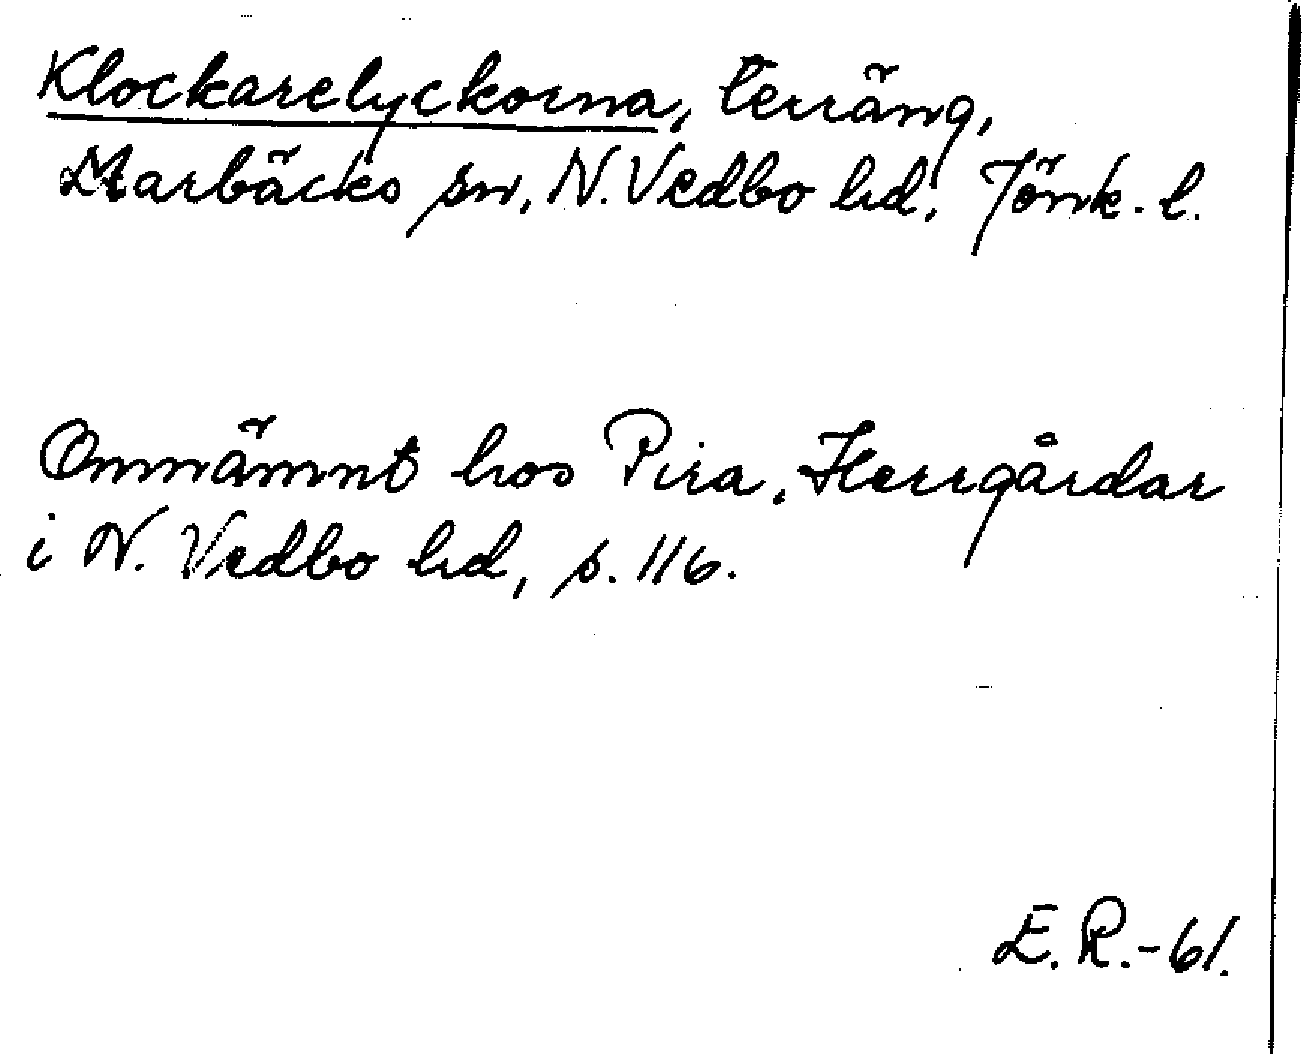 Klockarelyckorna, terräng,
Marbäcks sn, N. Vedbo hd, Jönk. l.
Omnämnt hos Pira, Herrgårdar
i N. Vedbo hd, s. 116.
E. R. -61.